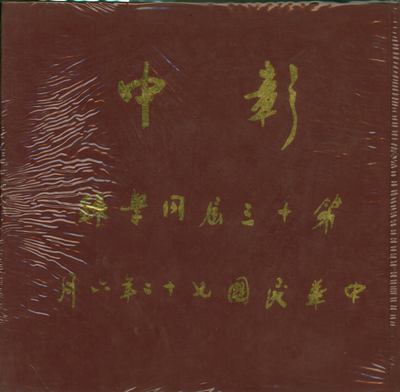 彰中
第十三屆同學錄
中華民國七十二年六月